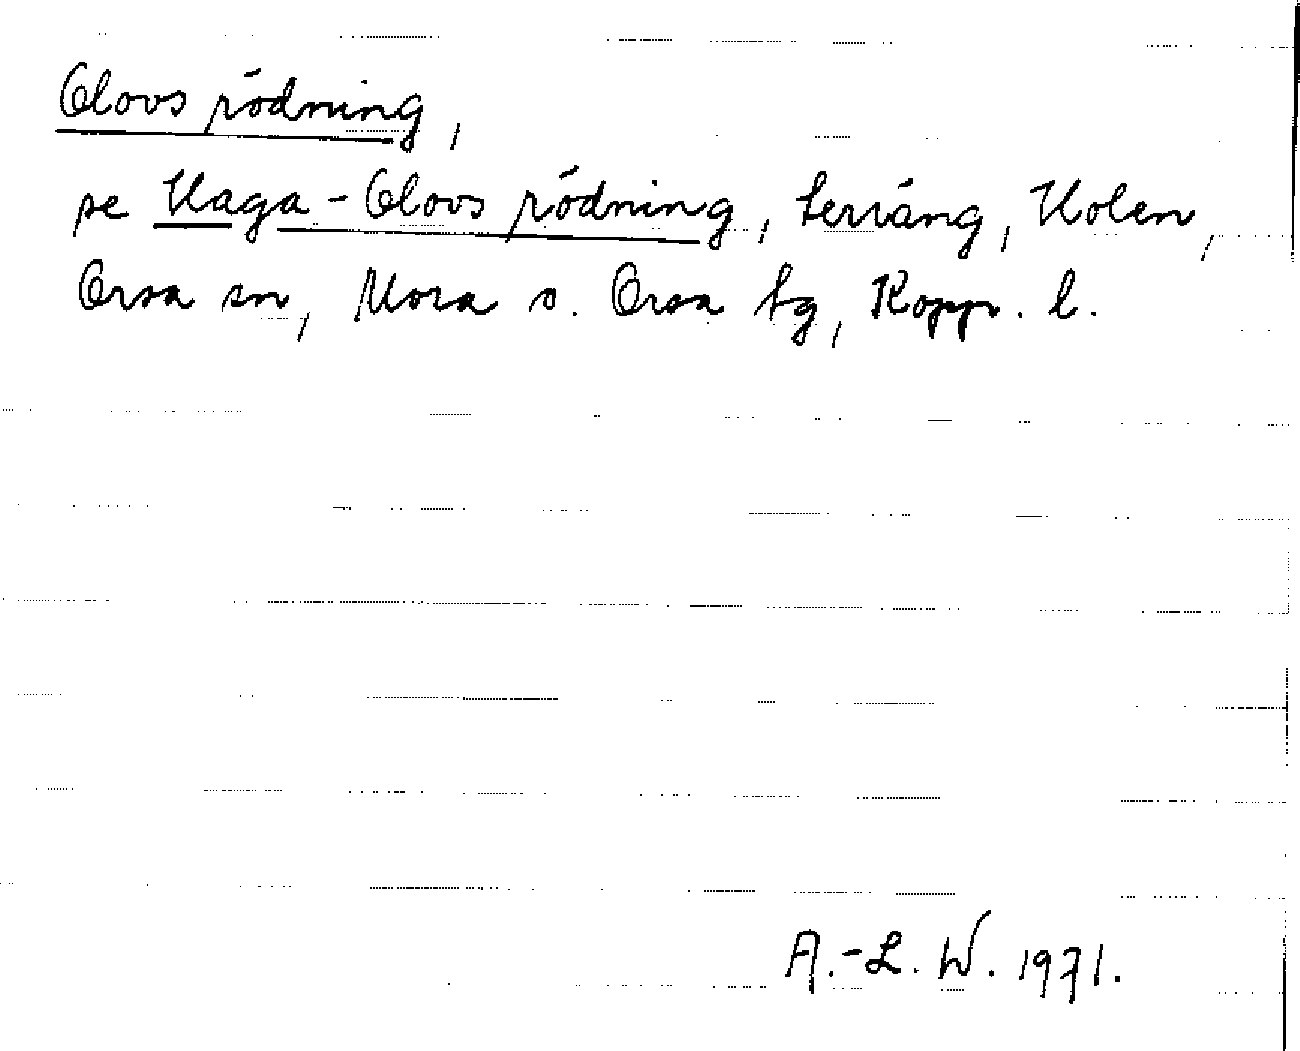 Olovs rödning,
se Haga-Olovs rödning, terräng, Holen,
Orsa sn, Mora o. Orsa tg, Kopp. l.
A.-L. W. 1971.